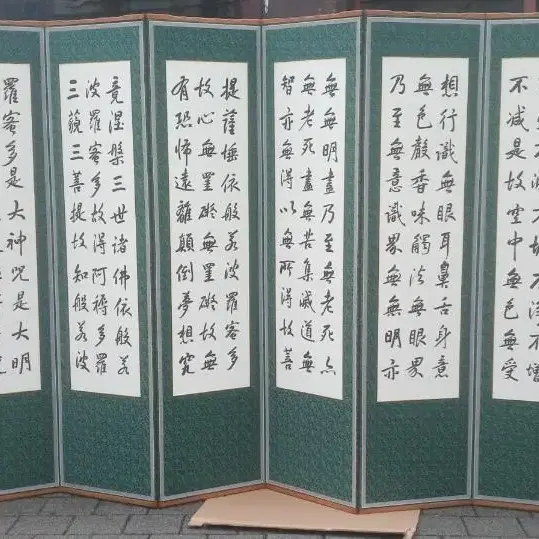 不滅不垢不淨不增
不減是故空中無色無受
想行識無眼耳鼻舌身意
無色聲香味觸法無眼界
乃至無意識界無無明亦
無無明盡乃至無老死亦
無老死盡無苦集滅道無
智亦無得以無所得故菩
提薩埵依般若波羅蜜多
故心無罣礙無罣礙故無
有恐怖遠離顛倒夢想究
竟涅槃三世諸佛依般若
波羅蜜多故得阿耨多羅
三藐三菩提故知般若波
羅蜜多是大神咒是大明